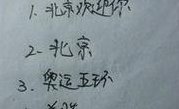 1. 北京欢迎你
2. 北京
3. 奥运五环